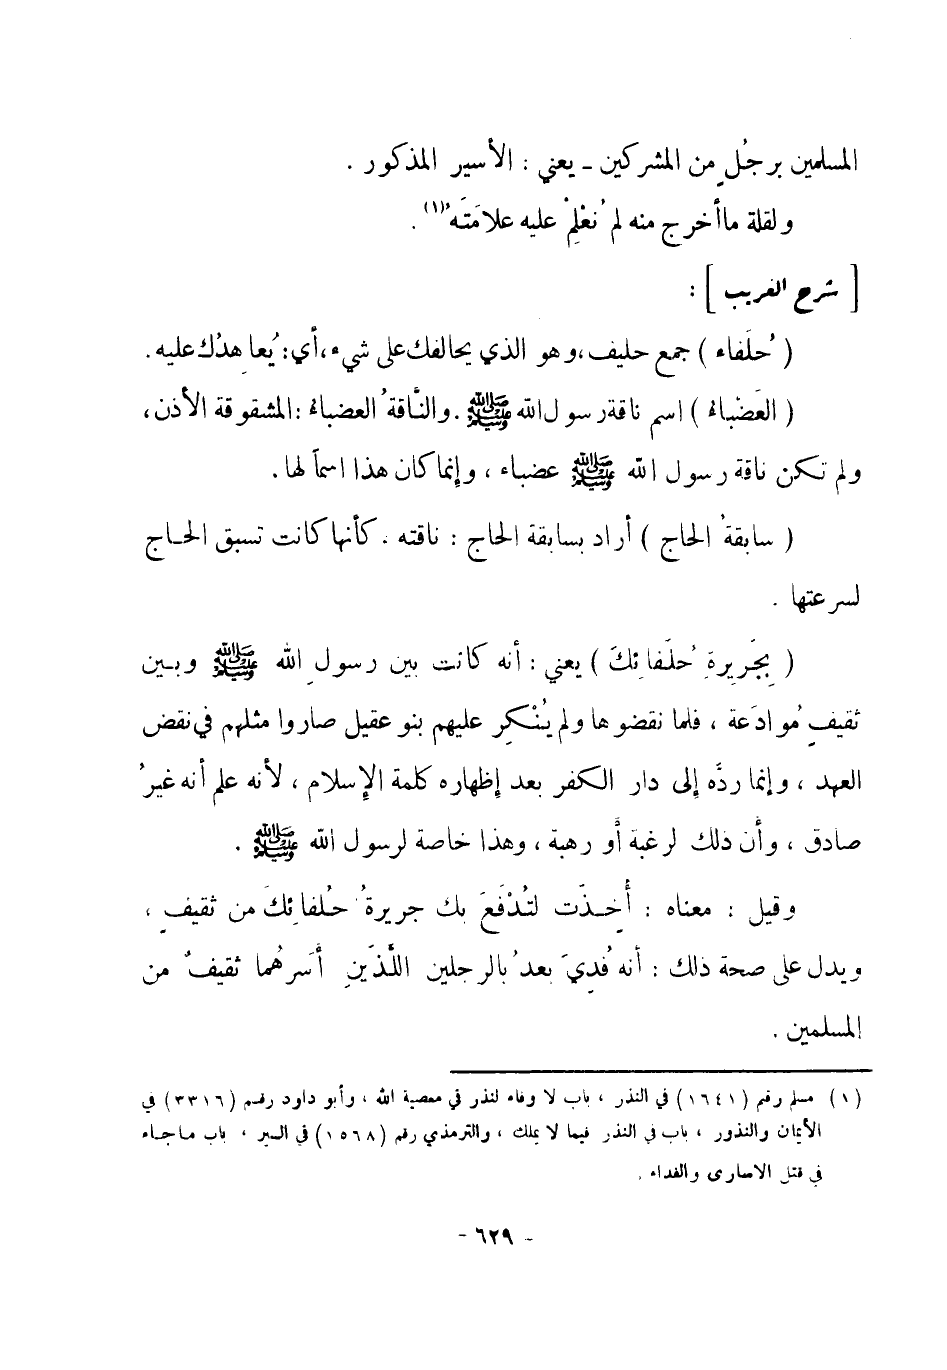 المسلمين برجُلٍ من المشركين ـ يعني : الأسير المذكور .
ولقلة ما أخرج منه لم نُعْلِمْ عليه علامَتَه(١) .
[ شرح الغريب ] :
( حُلَفاء ) جمع حليف ، وهو الذي يحالفك على شيء ، أي : يُعاهِدُك عليه .
( العَضْباءُ ) اسم ناقة رسول الله ﷺ . والنَّاقةُ العضباءُ : المشقوقة الأذن ،
ولم تكن ناقة رسول الله ﷺ عضباء ، وإنما كان هذا اسماً لها .
( سابقةُ الحاج ) أراد بسابقة الحاج : ناقته . كأنها كانت تسبق الحاج
لسرعتها .
( بِجَرِيرةِ حُلَفائِكَ ) يعني : أنه كانت بين رسولِ الله ﷺ وبين
ثقيفٍ مُوادَعة ، فلما نقضوها ولم يُنْكِر عليهم بنو عقيل صاروا مثلهم في نقض
العهد ، وإنما ردَّه إلى دار الكفر بعد إظهاره كلمة الإسلام ، لأنه علم أنه غيرُ
صادق ، وأن ذلك لرغبة أو رهبة ، وهذا خاصة لرسول الله ﷺ .
وقيل : معناه : أُخِذَت لتُدْفَعَ بك جريرةُ حُلفائِكَ من ثقيفٍ ،
ويدل على صحة ذلك : أنه فُدِيَ بعدُ بالرجلين اللَّذَينِ أسَرهُما ثقيفٌ من
المسلمين .
(١) مسلم رقم (١٦٤١) في النذر ، باب لا وفاء لنذر في معصية الله ، وأبو داود رقم (٣٣١٦) في
الأيمان والنذور ، باب في النذر فيما لا يملك ، والترمذي رقم (١٥٦٨) في السير ، باب ماجاء
في قتل الاسارى والفداء .
- ٦٢٩ -